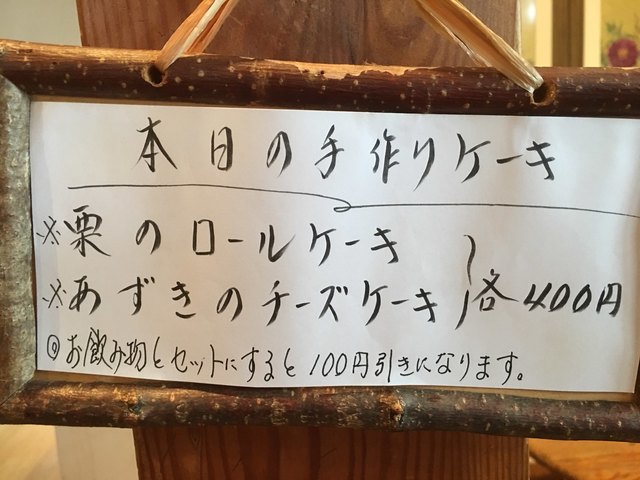 本日の手作りケーキ
※栗のロールケーキ
※あずきのチーズケーキ 各400円
◎お飲み物とセットにすると100円引きになります。